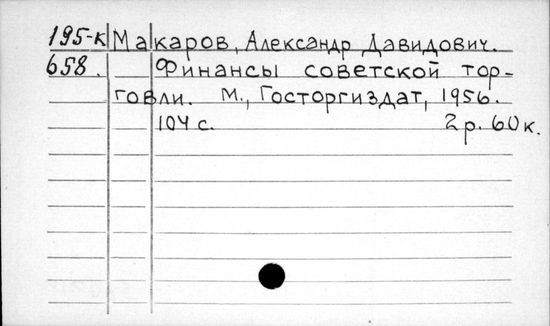 195-к Макаров, Александр Давидович.
658. Финансы советской тор-
говли. М., Госторгиздат, 1956.
104 с. 2 р. 60 к.